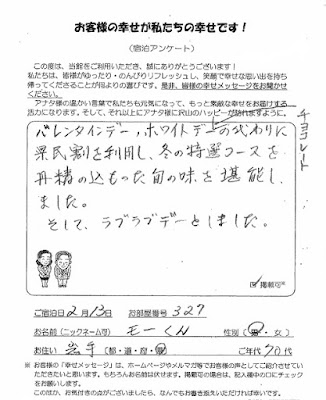 お客様の幸せが私たちの幸せです！
（宿泊アンケート）
この度は、当館をご利用いただき、誠にありがとうございます！
私たちは、皆様がゆったり・のんびりリフレッシュし、笑顔で幸せな思い出を持ち
帰ってくださることが何よりの喜びです。是非、皆様の幸せメッセージをお聞かせ
ください。
アナタ様の温かい言葉で私たちも元気になって、もっと素敵な幸せをお届けする
活力になります。そして、それ以上にアナタ様に沢山のハッピーが訪れますように。
チョコレート
バレンタインデー、ホワイトデーの代わりに
県民割を利用し、冬の特選コースを
丹精の込もった旬の味を堪能し、
ました。
そして、ラブラブデーとしました。
掲載可※
ご宿泊日 2月13日 お部屋番号 327
お名前（ニックネーム可） モーくん 性別（男・女）
お住い 岩手（都・道・府・県） ご年代 70代
※ お客様の「幸せメッセージ」は、ホームページやメルマガ等でお客様の声としてご紹介させてい
ただきたいと思います。もちろんお名前は伏せます。掲載可の場合は、記入欄中の□にチェック
をお願いします。
このほか、お気付きの点がございましたら、なんでもお書き添えいただければ幸いです。